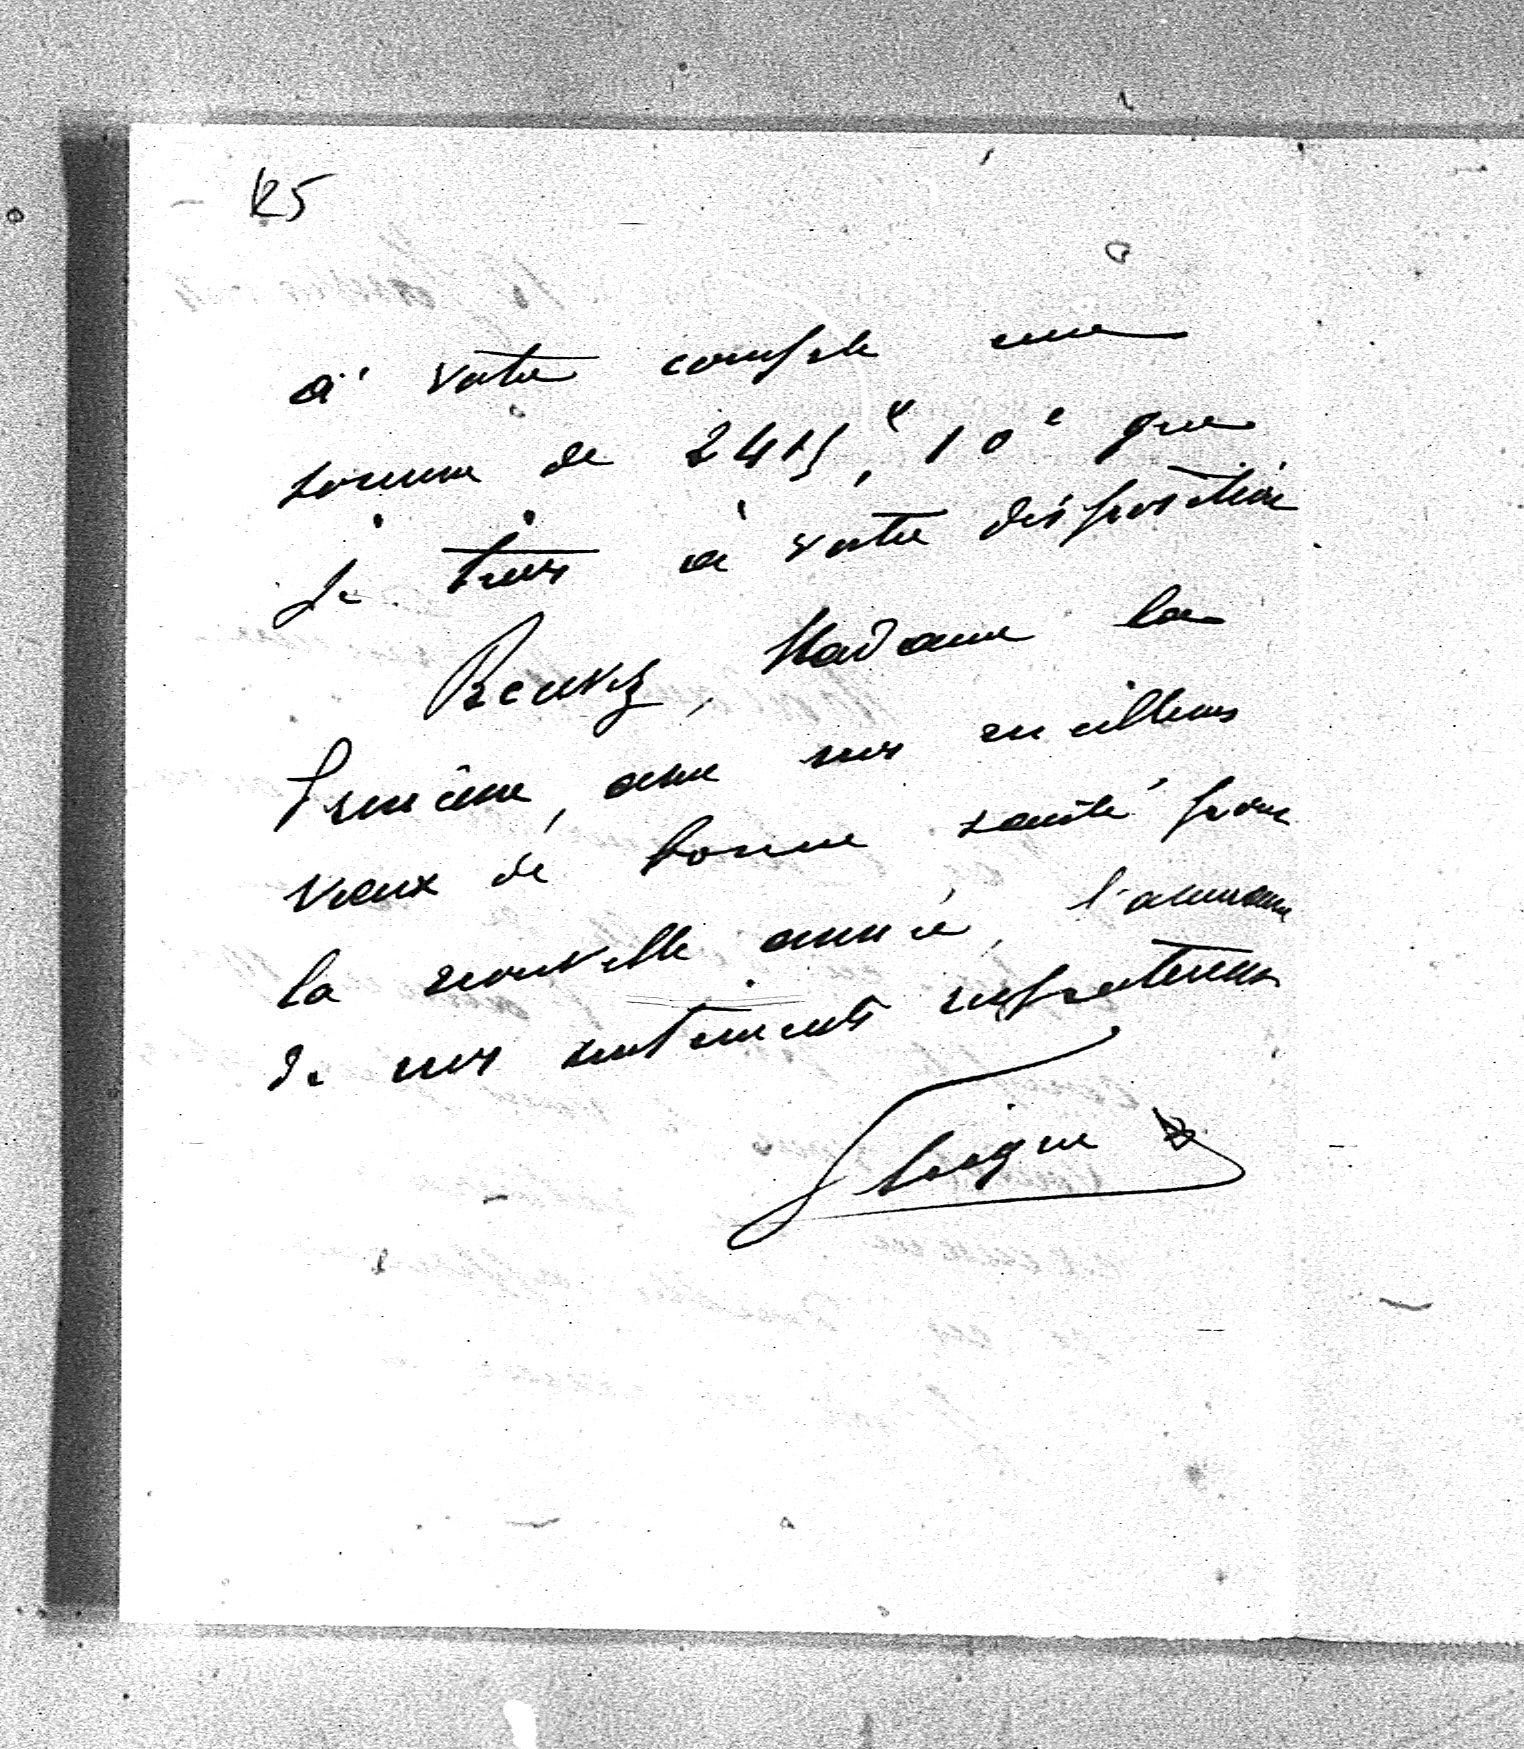 125
à votre compte une
somme de 2415,10 que
je tiens à votre disposition
Recevez, Madame la
Princesse, avec mes meilleurs
vœux de bonne santé pour
la nouvelle année, l'assurance
de mes sentiments respectueux